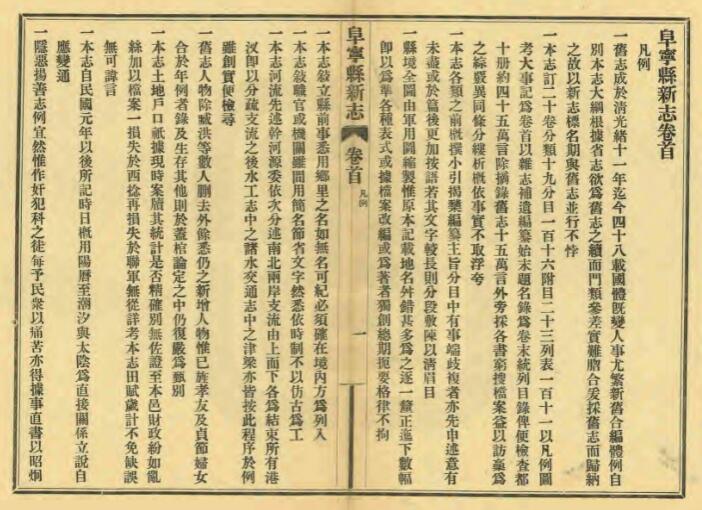 阜寧縣新志卷首
凡例
一舊志成於淸光緖十一年迄今四十八載國體旣變人事尤繁新舊合編體例自
別本志大綱根據省志欲爲舊志之續而門類參差實難脗合爰採舊志而歸納
之故以新志標名期與舊志並行不悖
一本志訂二十卷分類十九分目一百十六附目二十三列表一百十一以凡例圖
考大事記爲卷首以雜志補遺編纂始末題名錄爲卷末統列目錄俾便檢查都
十册約四十五萬言除摘錄舊志十五萬言外旁採各書窮搜檔案益以訪藁爲
之綜嚴異同條分縷析概依事實不取浮夸
一本志各類之前概撰小引揭櫫編纂主旨分目中有事端歧複者亦先申述意有
未盡或於篇後更加按語若其文字較長則分段敷陳以淸眉目
一縣境全圖由軍用圖縮製惟原本記載地名舛錯甚多爲之逐一釐正迤下數幅
卽以爲準各種表式或據檔案改編或爲著者獨創總期扼要格律不拘
阜寧縣新志
卷首
凡例
一
一本志敍立縣前事悉用鄕里之名如無名可紀必須確在境內方爲列入
一本志敍職官或機關雖間用簡名節省文字然悉依時制不以仿古爲工
一本志河流先述幹河源委依次分述南北兩岸支流由上而下各爲結束所有港
汊卽以分疏支流之後水工志中之諸水交通志中之津梁亦皆按此程序於例
雖創實便檢尋
一舊志人物除臧洪等數人刪去外餘悉仍之新增人物惟已旌孝友及貞節婦女
合於年例者錄及生存其他則於蓋棺論定之中仍復嚴爲甄別
一本志土地戶口祗據現時案牘其統計是否精確別無佐證至本邑財政紛如亂
絲加以檔案一損失於西捻再損失於聯軍無從詳考本志田賦歲計不免缺誤
無可諱言
一本志自民國元年以後所記時日概用陽曆至潮汐與太陰爲直接關係立說自
應變通
一隱惡揚善志例宜然惟作奸犯科之徒每予民衆以痛苦亦得據事直書以昭炯